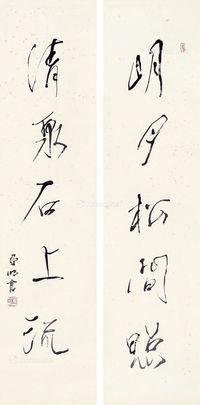 明月松間照
清泉石上流
亞明書